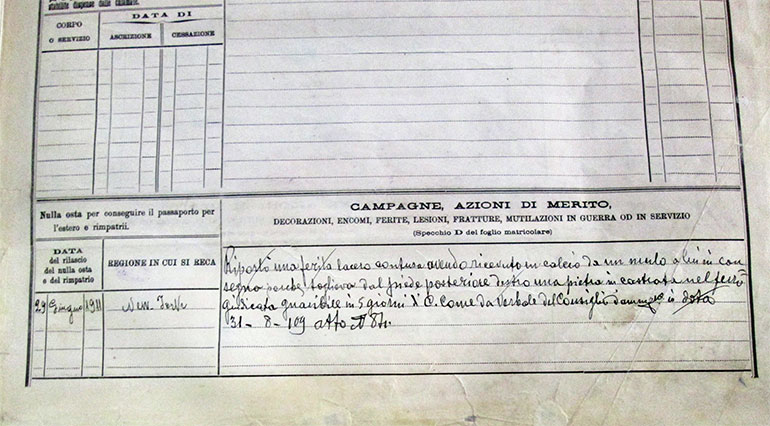 stabilite dispense dalle chiamate.
CORPO
O SERVIZIO
DATA DI
ASCRIZIONE
CESSAZIONE
Nulla osta per conseguire il passaporto per
l'estero e rimpatrii.
DATA
del rilascio
del nulla osta
e del rimpatrio
REGIONE IN CUI SI RECA
29 Giugno 1911
New York
CAMPAGNE, AZIONI DI MERITO,
DECORAZIONI, ENCOMI, FERITE, LESIONI, FRATTURE, MUTILAZIONI IN GUERRA OD IN SERVIZIO
(Specchio D del foglio matricolare)
Riportò una ferita lacero contusa avendo ricevuto un calcio da un mulo a lui in con
segno perchè toglieva dal piede posteriore destro una pietra incastrata nel ferro
giudicata guaribile in 5 giorni Come da Verbale del Consiglio d'amm in data
31-8-109 atto N 84.